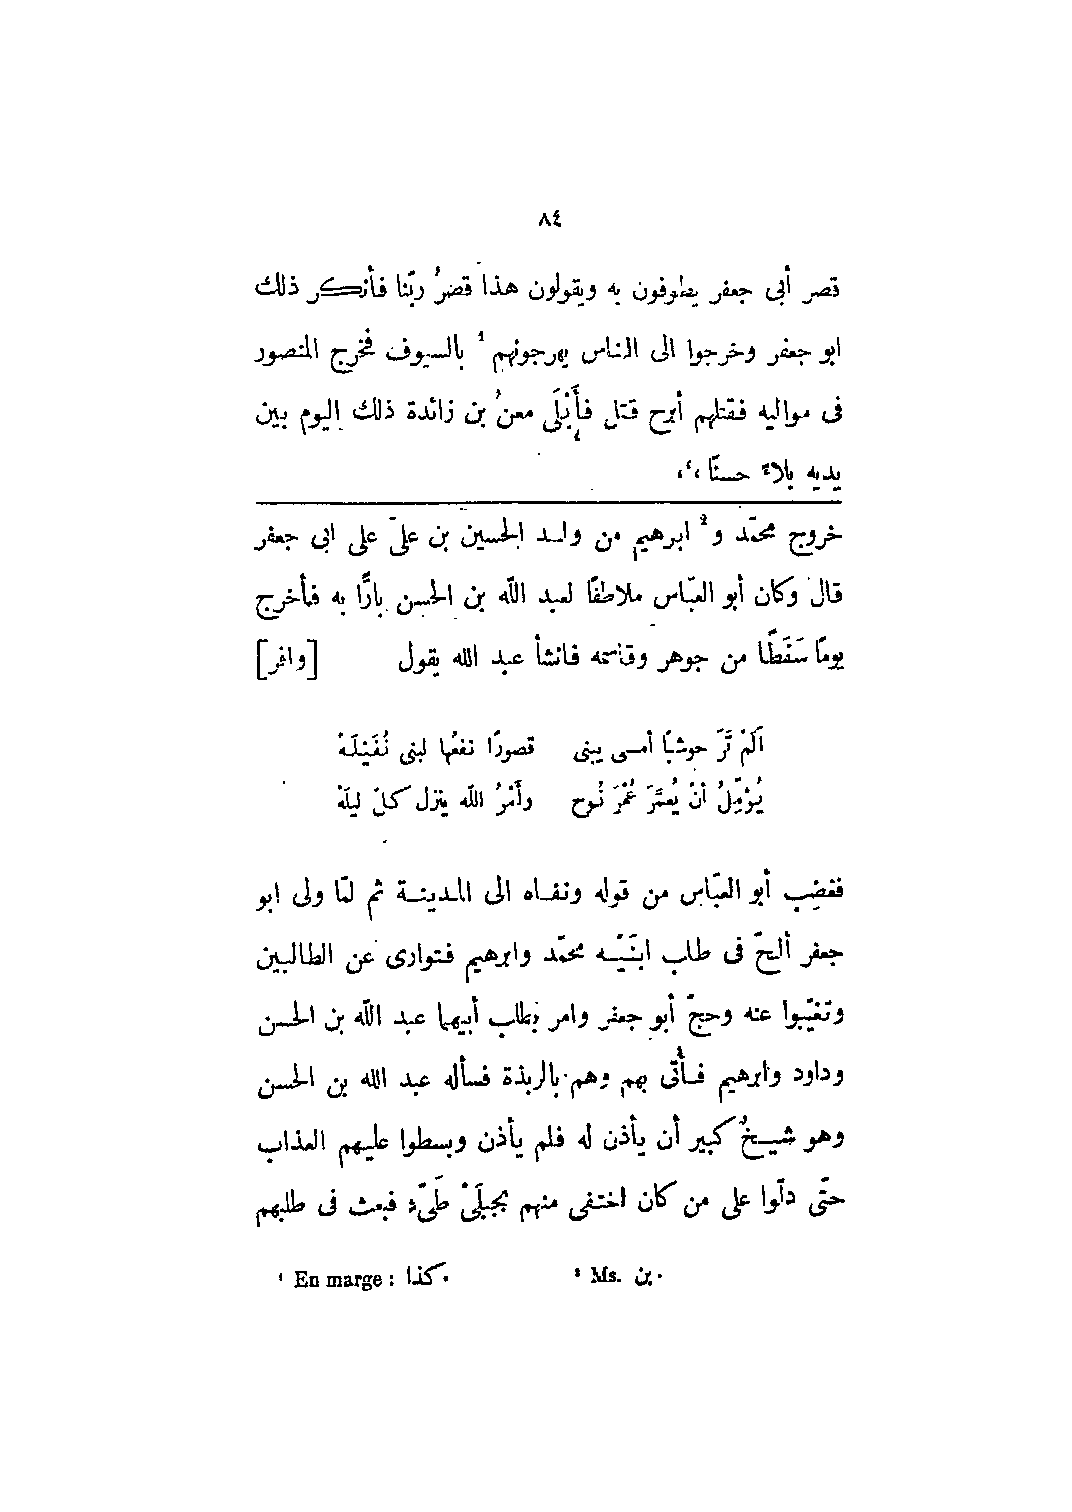 ٨٤
قصر أبى جعفر يطوفون به ويقولون هذا قصرُ ربّنا فأنكر ذلك
ابو جعفر وخرجوا الى الناس يهرجونهم ¹ بالسيوف فخرج المنصور
فى مواليه فقتلهم أبرح قتل فأَبْلَى معنُ بن زائدة ذلك اليوم بين
يديه بلاءً حسنًا ،‘،
خروج محمّد و² ابرهيم من ولد الحسين بن علىّ على ابى جعفر
قال وكان أبو العبّاس ملاطفًا لعبد الله بن الحسن بارًّا به فأخرج
يومًا سَفَطًا من جوهر وقاسمه فانشأ عبد الله يقول [وافر]
أَلَمْ تَرَ حوشبًا أمسى يبنى قصورًا نفعُها لبنى نُفَيْلَهْ
يُؤمِّلُ أنْ يُعمَّرَ عُمْرَ نُوحٍ وأَمْرُ الله ينزل كلّ ليلَهْ
فغضِب أبو العبّاس من قوله ونفاه الى المدينة ثم لمّا ولى ابو
جعفر ألحّ فى طلب ابنَيْه محمّد وابرهيم فتوارى عن الطالبين
وتغيّبوا عنه وحجّ أبو جعفر وامر بطلب أبيهما عبد الله بن الحسن
وداود وابرهيم فأُتى بهم وهم بالربذة فسأله عبد الله بن الحسن
وهو شيخٌ كبير أن يأذن له فلم يأذن وبسطوا عليهم العذاب
حتّى دلّوا على من كان اختفى منهم بجبلَىْ طَىّء فبعث فى طلبهم
¹ En marge : كذا.
² Ms. بن.